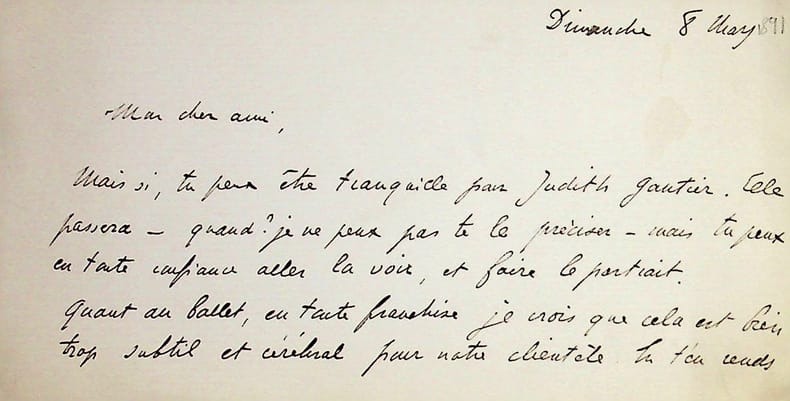 Dimanche 8 Mars 1891
Mon cher ami,
Mais si, tu peux être tranquille pour Judith Gautier. Elle
passera – quand? je ne peux pas te le préciser – mais tu peux
en toute confiance aller la voir, et faire le portrait.
Quant au ballet, en toute franchise je crois que cela est bien
trop subtil et cérébral pour notre clientèle. Tu t'en rends